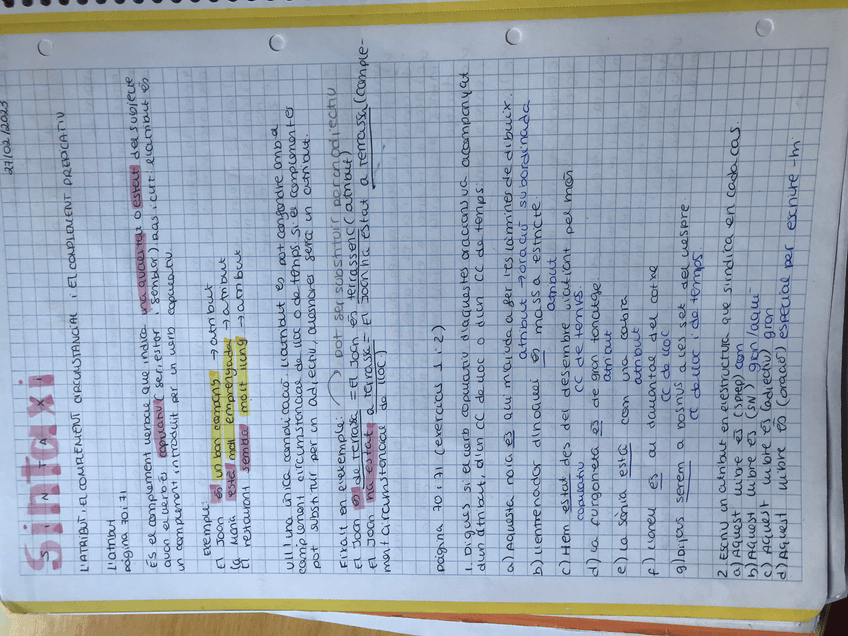 27/02/2023
SINTAXI
Sintaxi
L'ATRIBUT, EL COMPLEMENT CIRCUMSTANCIAL i EL COMPLEMENT PREDICATIU
L'atribut
pàgina 70 i 71
És el complement verbal que indica una qualitat o estat del subjecte
quan el verb és copulatiu (ser, estar i semblar). Així i tot l'atribut és
un complement introduït per un verb copulatiu.
Exemple:
El Joan és un bon company → atribut
La Maria està molt emprenyada → atribut
El restaurant sembla molt lluny → atribut
Ull! una única complicació. L'atribut es pot confondre amb a
complement circumstancial de lloc o de temps. Si el complement es
pot substituir per un adjectiu, aleshores serà un atribut.
Fixa't en l'exemple: pot ser substituït per un adjectiu
El Joan és de Terrassa = El Joan és terrassenc (atribut)
El Joan ha estat a Terrassa = El Joan ha estat a Terrassa (comple-
ment circumstancial de lloc)
Pàgina 70 i 71 (exercicis 1 i 2)
1. Digues si el verb copulatiu d'aquestes oracions va acompanyat
d'un atribut, d'un CC de lloc o d'un CC de temps.
a) Aquesta noia és qui m'ajuda a fer les làmines de dibuix.
atribut → oració subordinada
b) L'entrenador d'iniqual és massa estricte.
atribut
c) Hem estat des del desembre viatjant pel món
copulatiu CC de temps
d) La furgoneta és de gran tonatge.
atribut
e) La Sònia està com una cabra
atribut
f) L'areu és al davantal del cotxe
CC de lloc
g) Dijous serem a Bosnus a les set del vespre
CC de lloc i de temps.
2. Escriu un atribut en l'estructura que s'indica en cada cas.
a) Aquest llibre és (SPrep) com
b) Aquest llibre és (SN) gran/aquí
c) Aquest llibre és (adjectiu) gran
d) Aquest llibre és (oració) especial per escriure-hi